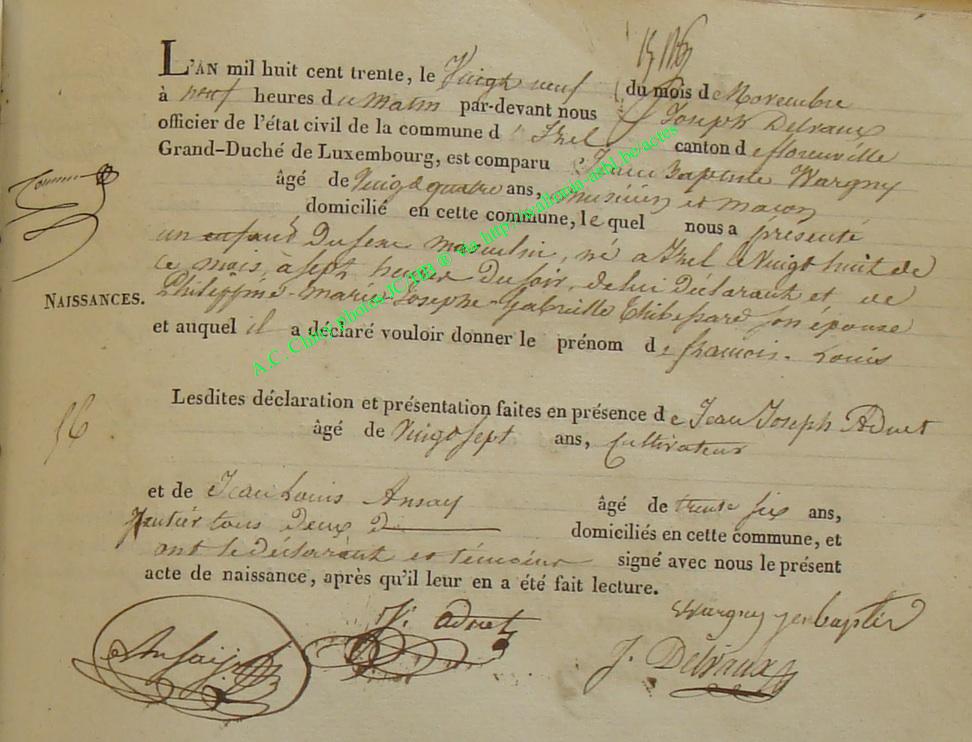 L'AN mil huit cent trente, le Vingt neuf du mois de Novembre
à neuf heures du Matin par-devant nous Joseph Delvaux
officier de l'état civil de la commune d'Izel canton de florenville
Grand-Duché de Luxembourg, est comparu Jean Baptiste Wargny
âgé de Vingt quatre ans, musicien et maçon
domicilié en cette commune, le quel nous a présenté
un enfant Du sexe masculin, né a Izel le Vingt huit de
ce mois, à sept heures Du soir, de lui Déclarant et de
Philippine-Marie-Josephe-Gabrielle Thibessard son épouse
NAISSANCES.
et auquel il a déclaré vouloir donner le prénom de francois-Louis
Lesdites déclaration et présentation faites en présence de Jean Joseph Adnet
56
âgé de Vingt sept ans, Cultivateur
et de Jean Louis Ansay âgé de trente six ans,
Rentier tous Deux D domiciliés en cette commune, et
ont le Déclarant et témoins signé avec nous le présent
acte de naissance, après qu'il leur en a été fait lecture.
Wargny jen baptis
J: adnet
Ansaij
J. Delvaux
A.C. Chiny photos IC/TIB ® via http://wallonia-asbl.be/actes